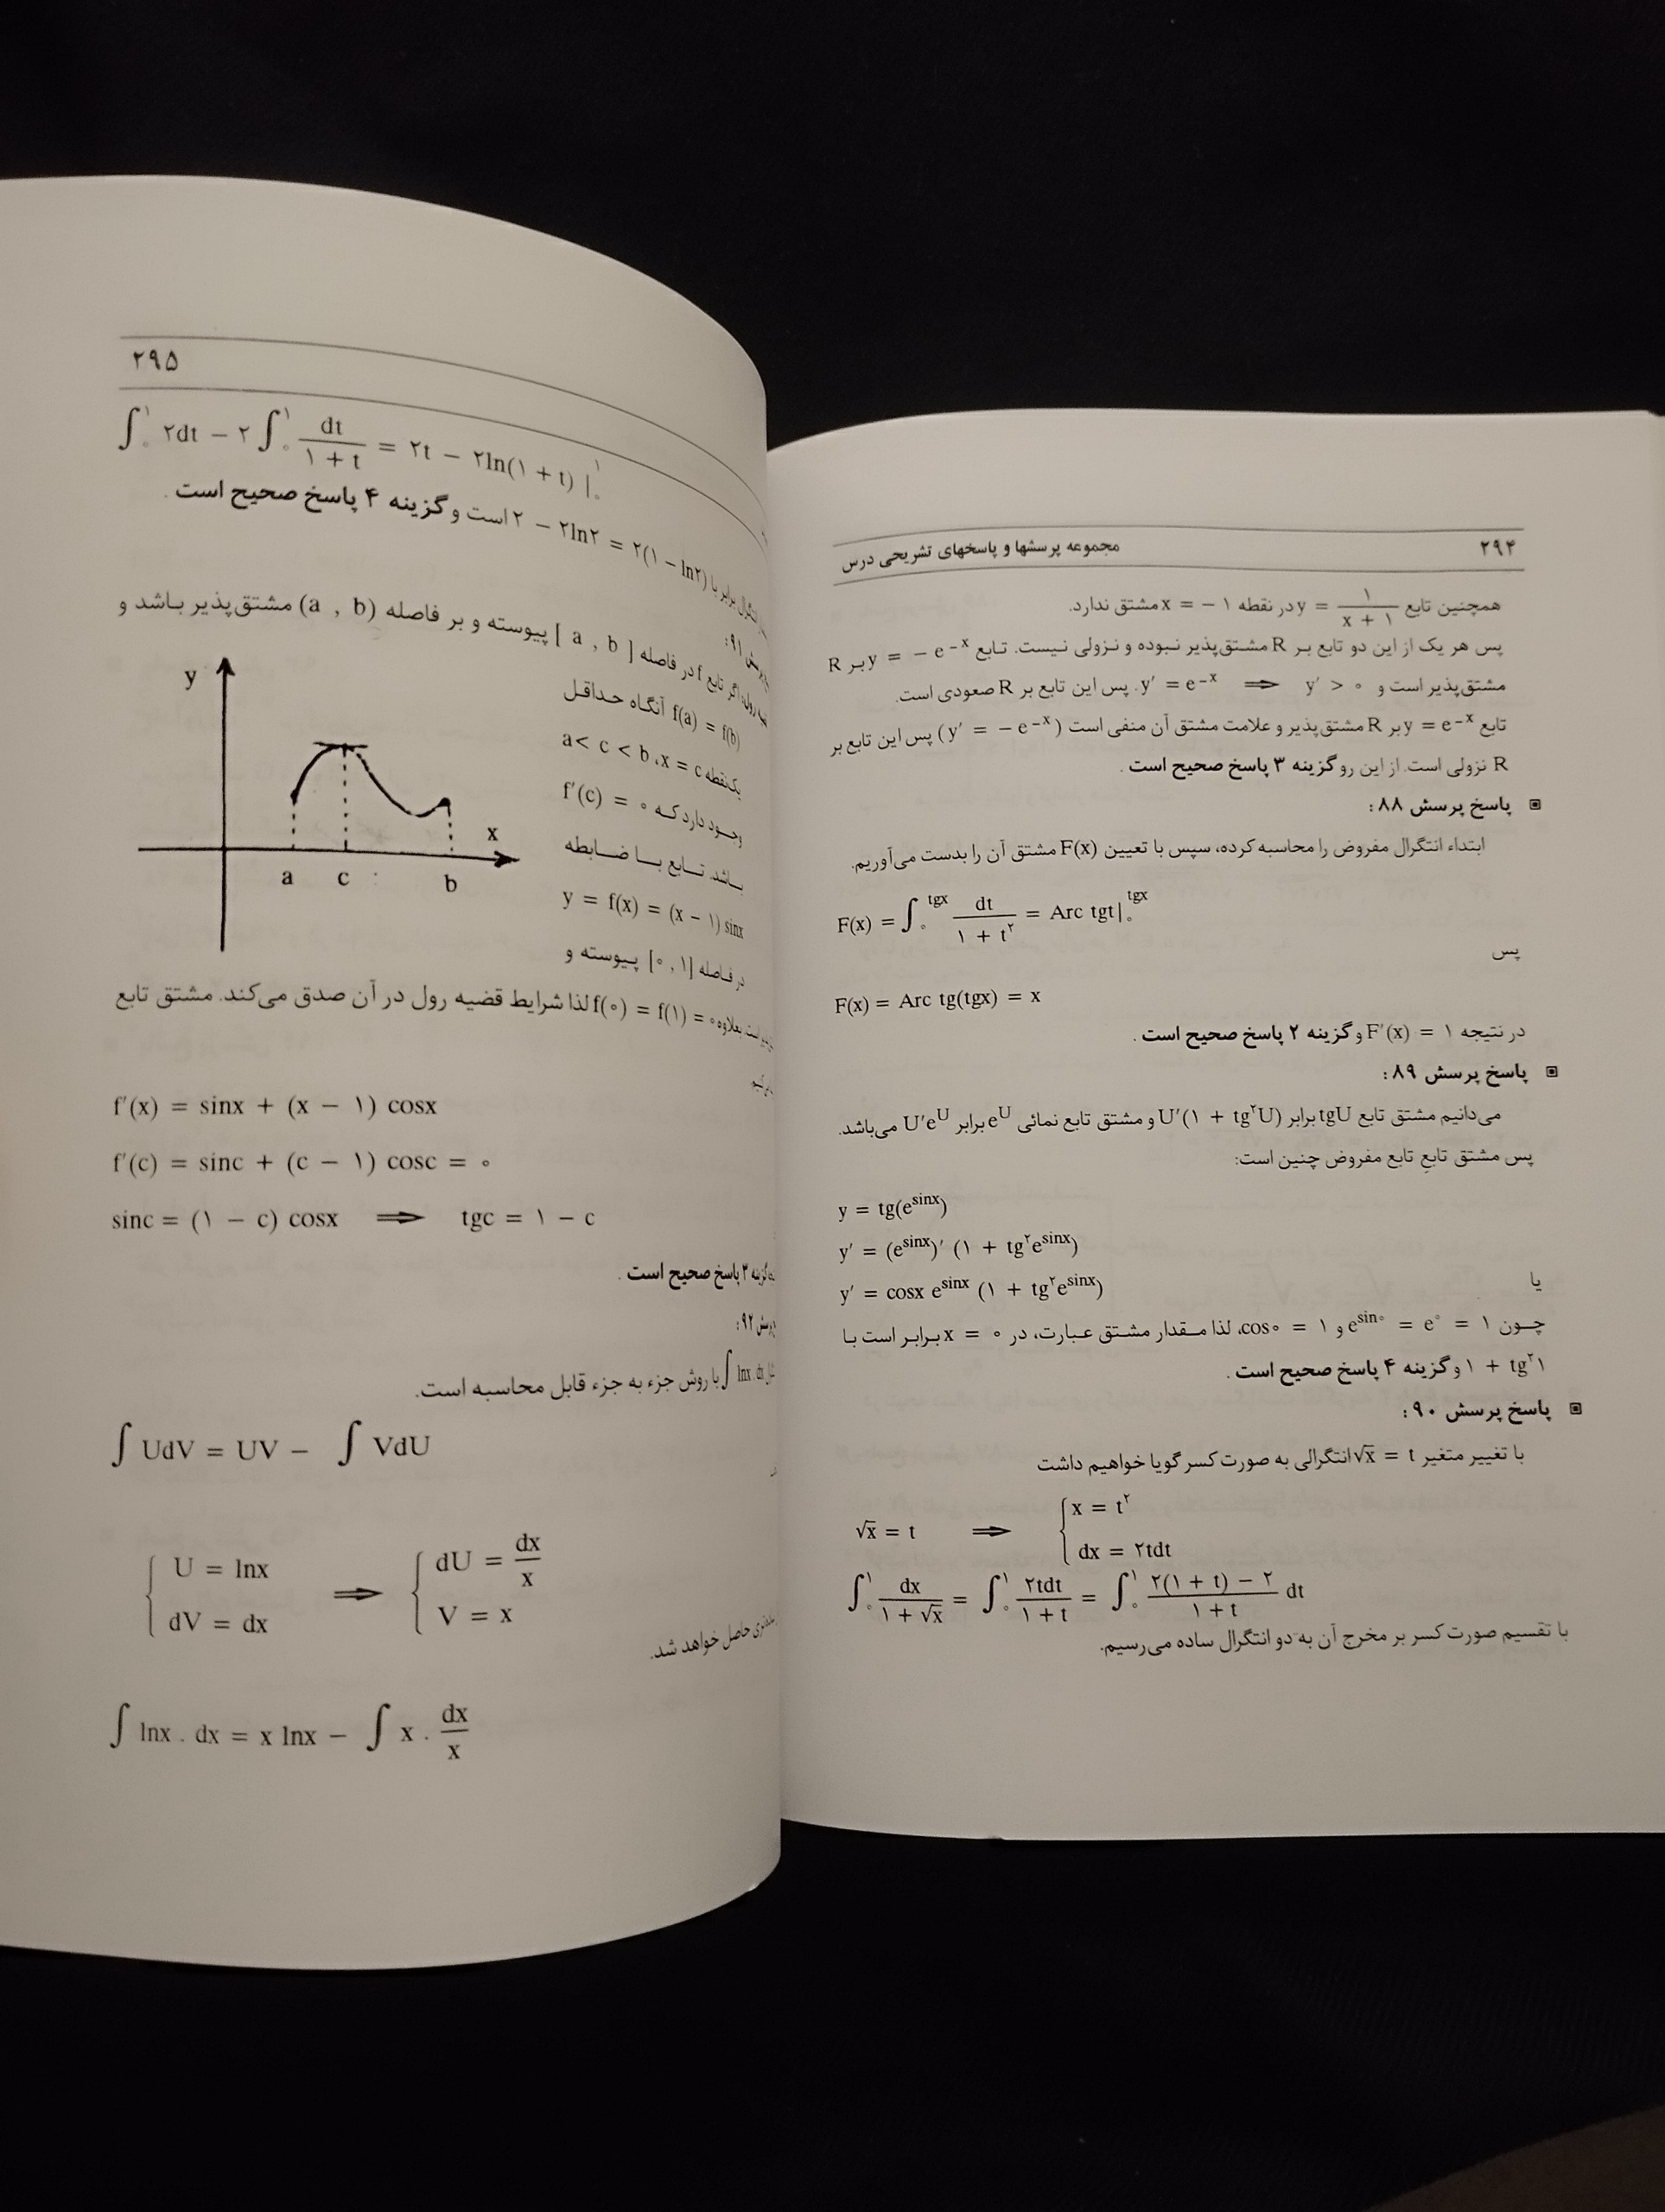 ۲۹۴
مجموعه پرسشها و پاسخهای تشریحی درس
همچنین تابع y = ۱/(x + ۱) در نقطه x = − ۱ مشتق ندارد.
پس هر یک از این دو تابع بر R مشتق‌پذیر نبوده و نزولی نیست. تابع y = − e⁻ˣ بر R
مشتق‌پذیر است و y′ = e⁻ˣ ⟹ y′ > ۰. پس این تابع بر R صعودی است.
تابع y = e⁻ˣ بر R مشتق‌پذیر و علامت مشتق آن منفی است (y′ = − e⁻ˣ) پس این تابع بر
R نزولی است. از این رو گزینه ۳ پاسخ صحیح است.
▣ پاسخ پرسش ۸۸:
ابتداء انتگرال مفروض را محاسبه کرده، سپس با تعیین F(x) مشتق آن را بدست می‌آوریم.
F(x) = ∫₀^tgx dt/(۱ + t²) = Arc tgt|₀^tgx
پس
F(x) = Arc tg(tgx) = x
در نتیجه F′(x) = ۱ و گزینه ۲ پاسخ صحیح است.
▣ پاسخ پرسش ۸۹:
می‌دانیم مشتق تابع tgU برابر U′(۱ + tg²U) و مشتق تابع نمائی e^U برابر U′e^U می‌باشد.
پس مشتق تابعِ تابع مفروض چنین است:
y = tg(e^sinx)
y′ = (e^sinx)′ (۱ + tg²e^sinx)
یا
y′ = cosx e^sinx (۱ + tg²e^sinx)
چون e^sin۰ = e^۰ = ۱ و cos۰ = ۱، لذا مقدار مشتق عبارت، در x = ۰ برابر است با
۱ + tg²۱ و گزینه ۴ پاسخ صحیح است.
▣ پاسخ پرسش ۹۰:
با تغییر متغیر √x = t انتگرالی به صورت کسر گویا خواهیم داشت
√x = t ⟹ { x = t²
dx = ۲tdt
∫₀^۱ dx/(۱ + √x) = ∫₀^۱ ۲tdt/(۱ + t) = ∫₀^۱ (۲(۱ + t) − ۲)/(۱ + t) dt
با تقسیم صورت کسر بر مخرج آن به دو انتگرال ساده می‌رسیم.
۲۹۵
∫₀^۱ ۲dt − ۲ ∫₀^۱ dt/(۱ + t) = ۲t − ۲ln(۱ + t) |₀^۱
انتگرال برابر با ۲ − ۲ln۲ = ۲(۱ − ln۲) است و گزینه ۴ پاسخ صحیح است.
پرسش ۹۱:
رول: اگر تابع f در فاصله [a , b] پیوسته و بر فاصله (a , b) مشتق‌پذیر باشد و
f(a) = f(b) آنگاه حداقل
یک نقطه x = c، a < c < b
وجود دارد که f′(c) = ۰
باشد. تابع با ضابطه
y = f(x) = (x − ۱) sinx
در فاصله [۰ , ۱] پیوسته و
y
x
a
c
b
است بعلاوه f(۰) = f(۱) = ۰ لذا شرایط قضیه رول در آن صدق می‌کند. مشتق تابع
f′(x) = sinx + (x − ۱) cosx
f′(c) = sinc + (c − ۱) cosc = ۰
sinc = (۱ − c) cosx ⟹ tgc = ۱ − c
گزینه ۳ پاسخ صحیح است.
پرسش ۹۲:
∫ lnx . dx با روش جزء به جزء قابل محاسبه است.
∫ UdV = UV − ∫ VdU
{ U = lnx ⟹ { dU = dx/x
dV = dx V = x
حاصل خواهد شد.
∫ lnx . dx = x lnx − ∫ x . dx/x